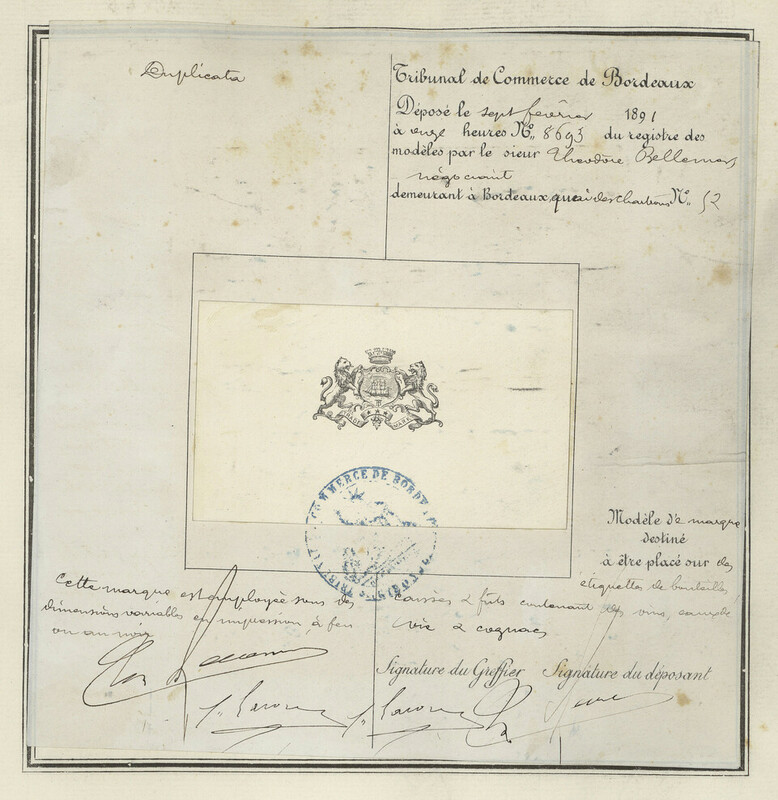 Duplicata
Tribunal de Commerce de Bordeaux
Déposé le sept février 1891
à onze heures No. 8693 du registre des
modèles par le sieur Théodore Bellemer
négociant
demeurant à Bordeaux, quai des Chartrons No. 52
COMMERCE DE BORDE
Modèle de marque
destiné
à être placé sur des
étiquettes de bouteilles,
caisses & futs contenant des vins, eaux de
vie & cognacs
Cette marque est employée sous des
dimensions variables en impression à feu
ou au noir
Signature du Greffier Signature du déposant